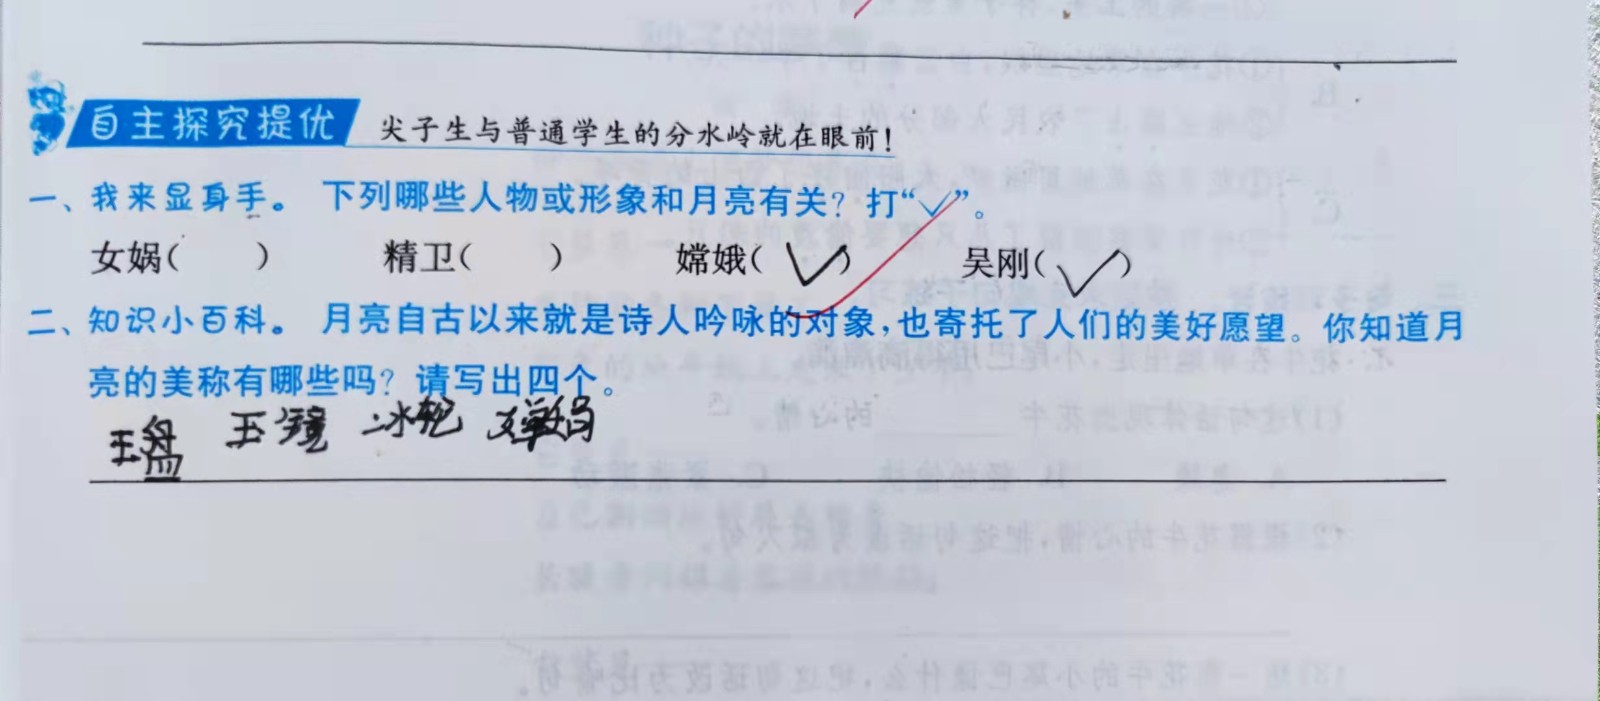 自主探究提优 尖子生与普通学生的分水岭就在眼前!
一、我来显身手。 下列哪些人物或形象和月亮有关? 打“√”。
女娲( ) 精卫( ) 嫦娥( √ ) 吴刚( √ )
二、知识小百科。 月亮自古以来就是诗人吟咏的对象,也寄托了人们的美好愿望。你知道月
亮的美称有哪些吗? 请写出四个。
玉盘 玉 冰轮 婵娟